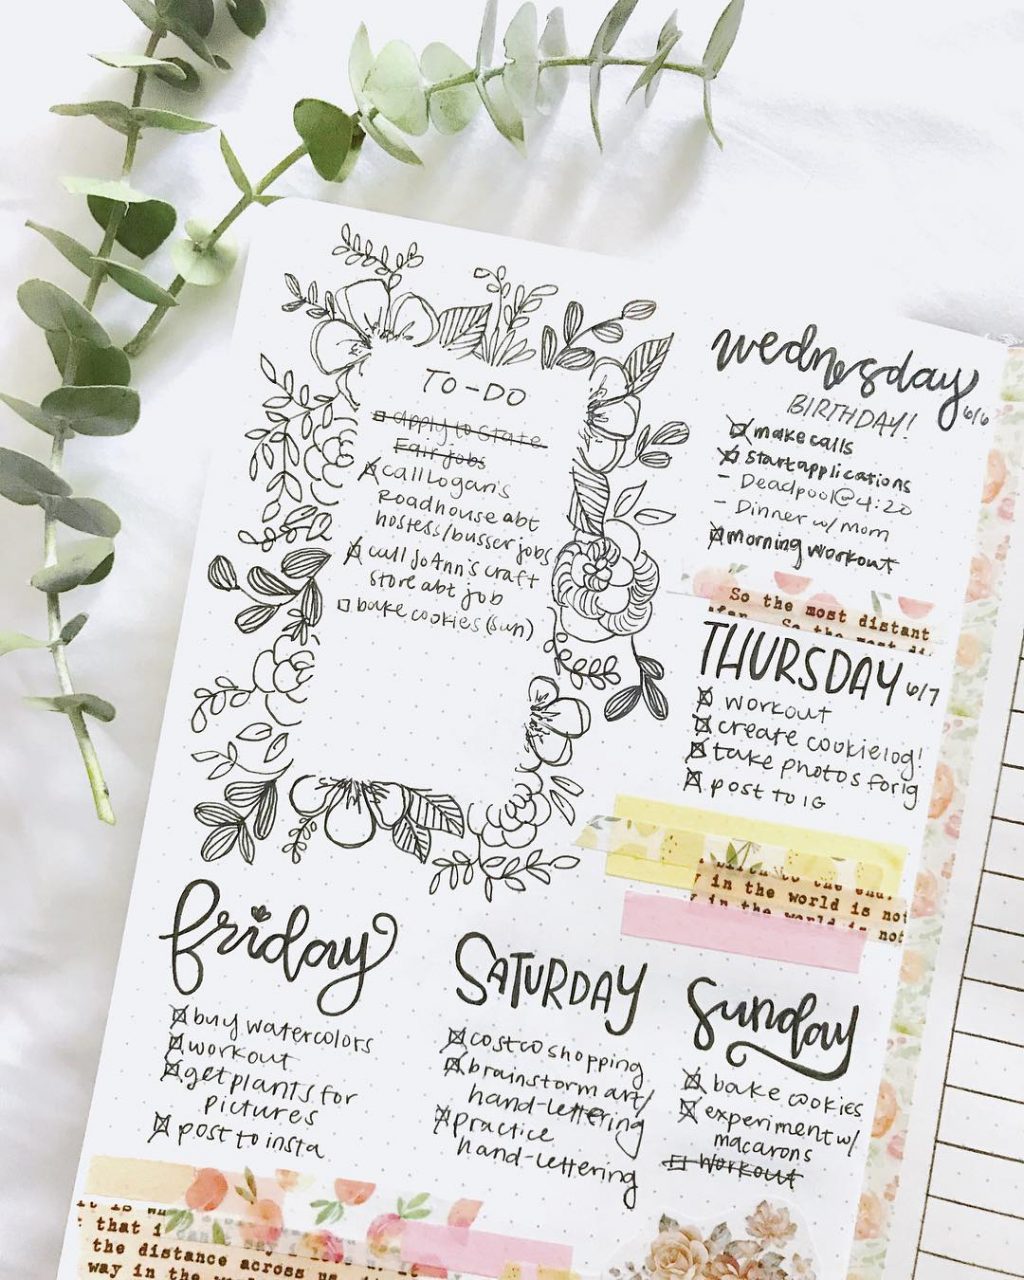 TO-DO
apply to State
Fair jobs
call Logan's
Roadhouse abt
hostess/busser jobs
call JoAnn's craft
store abt job
bake cookies (sun)
wednesday
6/6
BIRTHDAY!
make calls
start applications
- Deadpool@4:20
- Dinner w/ Mom
morning workout
So the most distant
So the most di
THURSDAY 6/7
workout
create cookielog!
take photos for ig
post to IG
birth to the end.
y in the world is not
y in the world is not
friday
buy watercolors
workout
get plants for
pictures
post to insta
SATURDAY
costco shopping
brainstorm art/
hand-lettering
practice
hand-lettering
sunday
bake cookies
experiment w/
macarons
workout
that i can't say i
the distance across us
way in the